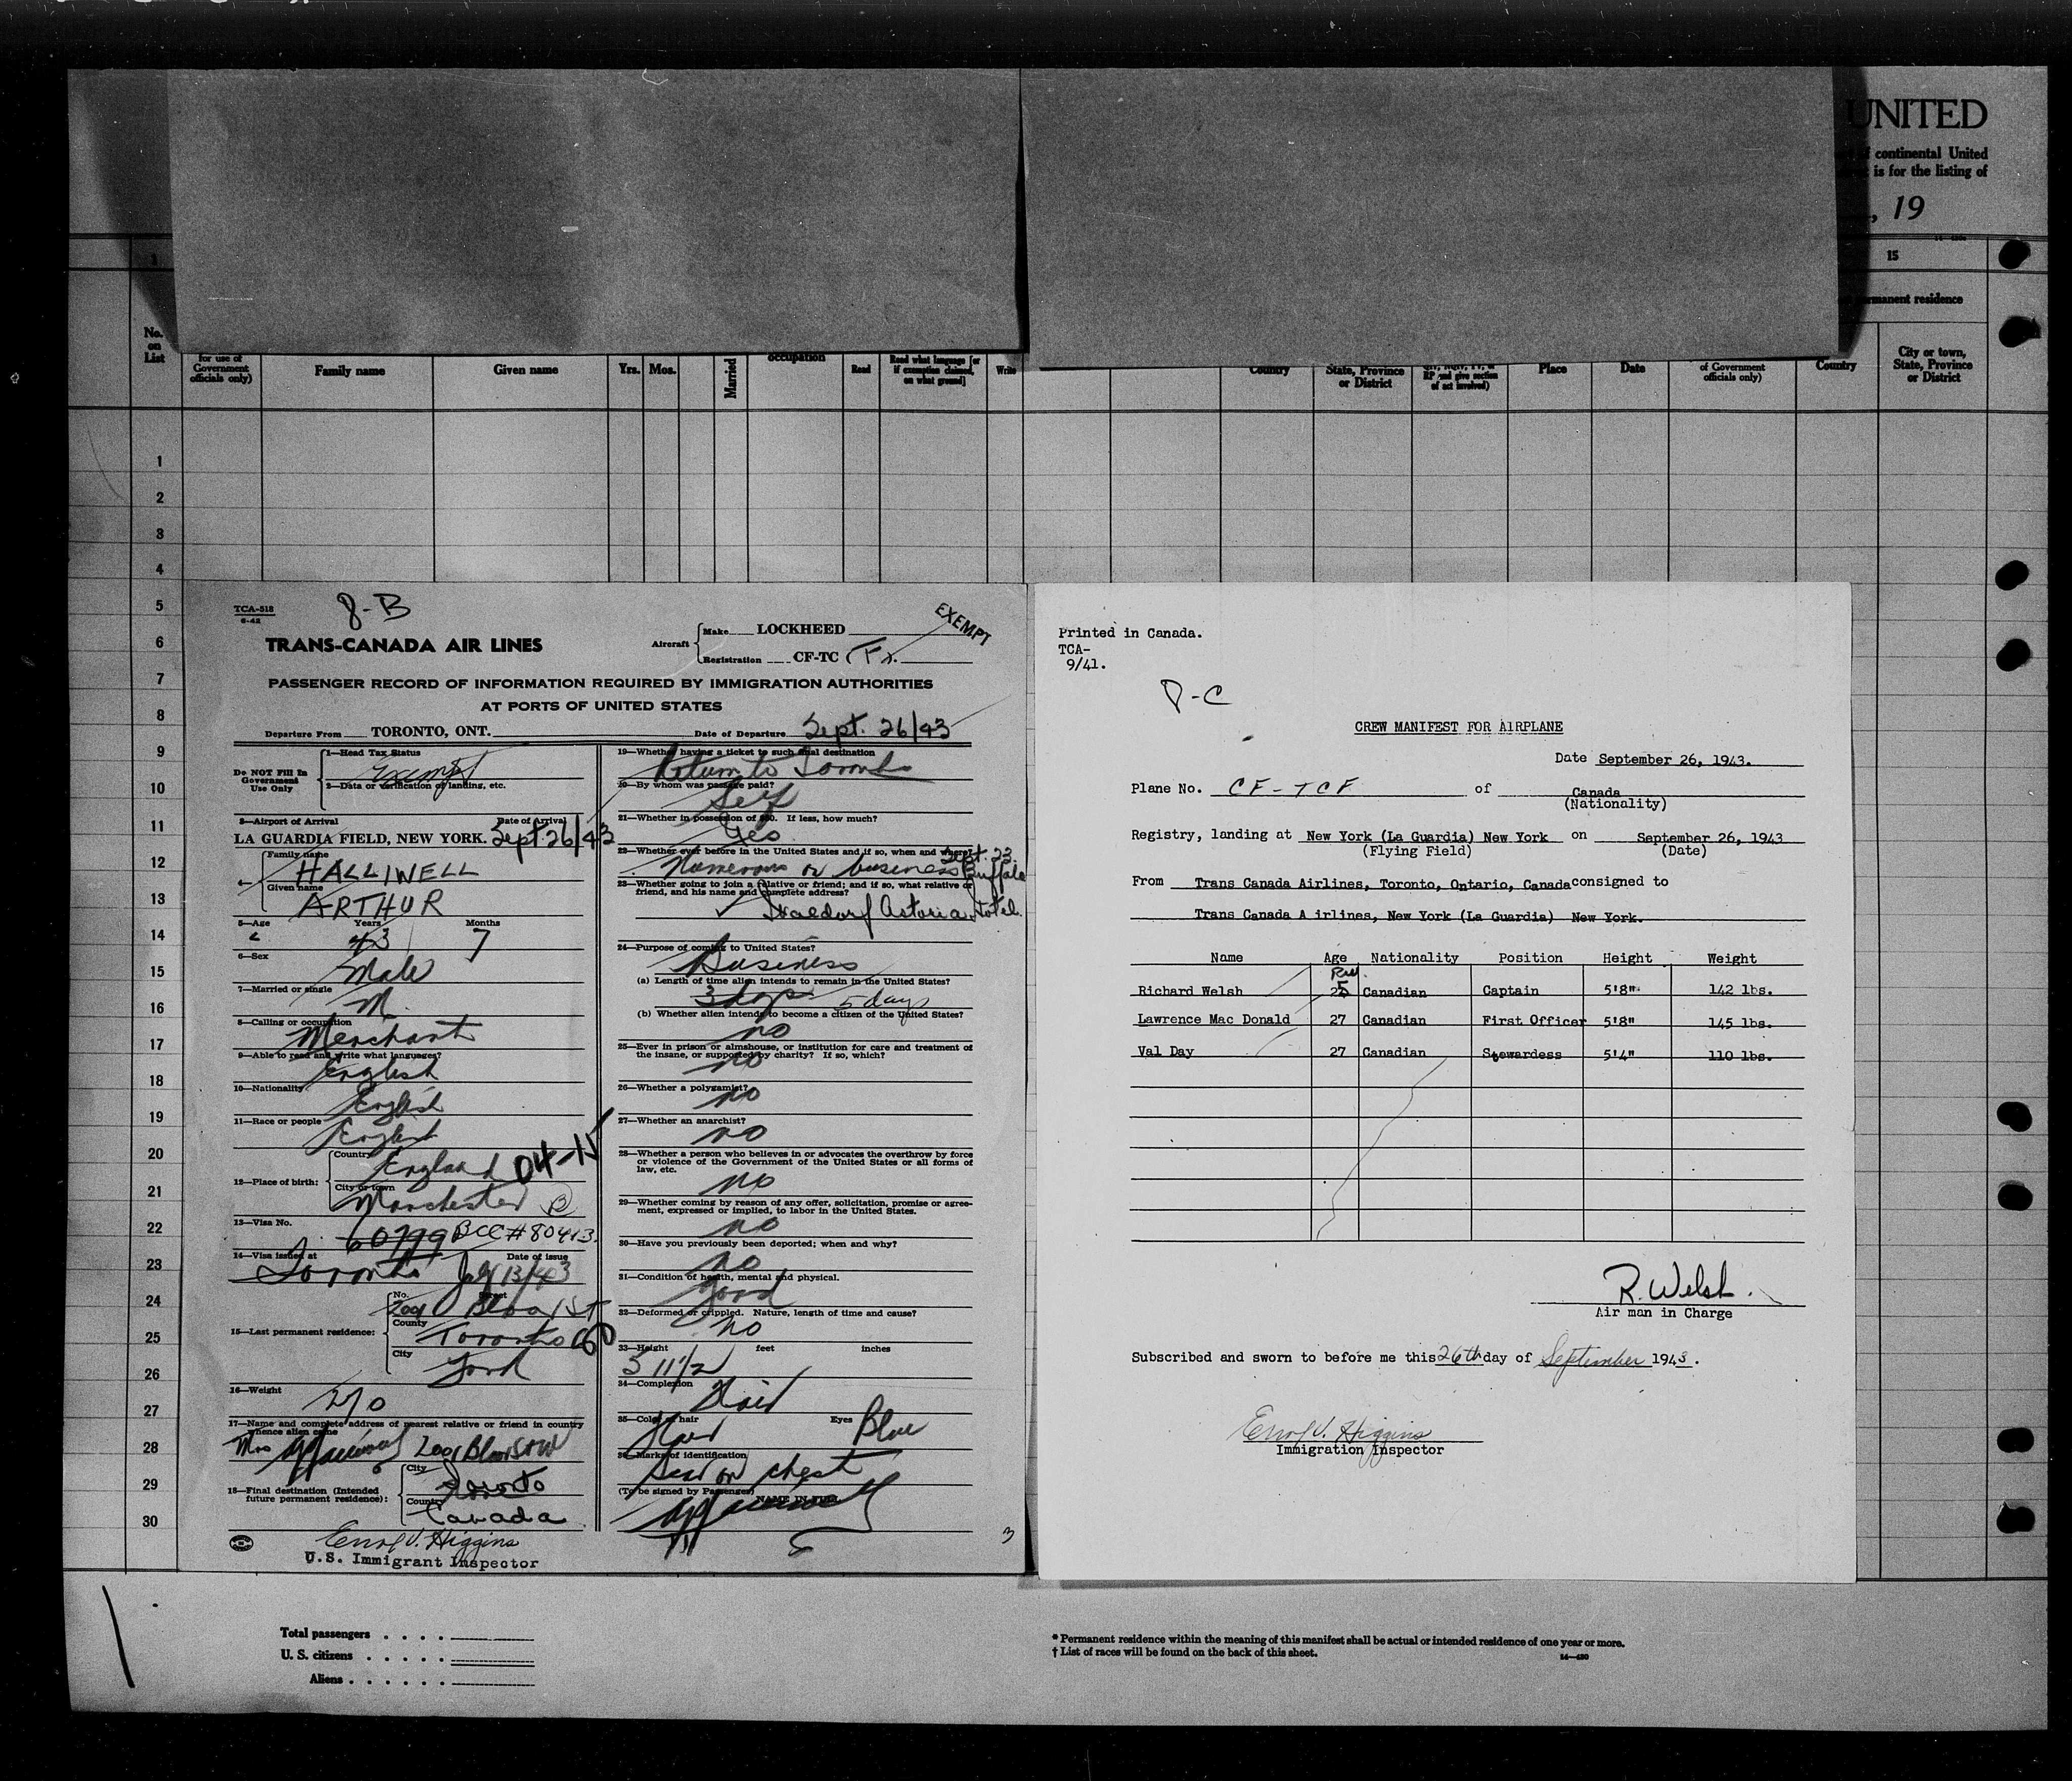 UNITED
of continental United
is for the listing of
, 19
1
15
permanent residence
No.
on
List
for use of
Government
officials only)
Family name
Given name
Yrs.
Mos.
Married
occupation
Read
Read what language [or
if exemption claimed,
on what ground]
Write
Country
State, Province
or District
RP and give section
of act involved)
Place
Date
of Government
officials only)
Country
City or town,
State, Province
or District
1
2
3
4
5
6
7
8
9
10
11
12
13
14
15
16
17
18
19
20
21
22
23
24
25
26
27
28
29
30
TCA-518
6-42
8-B
EXEMPT
TRANS-CANADA AIR LINES
Aircraft
Make LOCKHEED
Registration CF-TC
PASSENGER RECORD OF INFORMATION REQUIRED BY IMMIGRATION AUTHORITIES
AT PORTS OF UNITED STATES
Departure From TORONTO, ONT.
Date of Departure Sept. 26/43
Do NOT Fill In
Government
Use Only
1—Head Tax Status
Exempt
2—Data or verification of landing, etc.
3—Airport of Arrival
Date of Arrival
LA GUARDIA FIELD, NEW YORK. Sept. 26/43
4—
Family name
HALLIWELL
Given name
ARTHUR
5—Age
Years
Months
43
7
6—Sex
Male
7—Married or single
M.
8—Calling or occupation
Merchant
9—Able to read and write what languages?
English
10—Nationality
English
11—Race or people
English
12—Place of birth:
Country
England
04-15
City or town
Manchester
B
13—Visa No.
60799 BCC # 80413
14—Visa issued at
Date of issue
Toronto July 13/43
15—Last permanent residence:
No. Street
2001 Bloor St
County
Toronto
City
York
16—Weight
210
17—Name and complete address of nearest relative or friend in country
whence alien came
Mrs 2001 Bloor St W
18—Final destination (Intended
future permanent residence):
City
Toronto
Country
Canada
Errol V. Higgins
U.S. Immigrant Inspector
19—Whether having a ticket to such final destination
Return to Toronto
20—By whom was passage paid?
Self
21—Whether in possession of $60. If less, how much?
Yes
22—Whether ever before in the United States and if so, when and where?
Sept. 23.
Numerous on business Buffalo
23—Whether going to join a relative or friend; and if so, what relative or
friend, and his name and complete address?
Waldorf Astoria Hotel.
24—Purpose of coming to United States?
Business
(a) Length of time alien intends to remain in the United States?
3 days 5 days
(b) Whether alien intends to become a citizen of the United States?
no
25—Ever in prison or almshouse, or institution for care and treatment of
the insane, or supported by charity? If so, which?
no
26—Whether a polygamist?
no
27—Whether an anarchist?
no
28—Whether a person who believes in or advocates the overthrow by force
or violence of the Government of the United States or all forms of
law, etc.
no
29—Whether coming by reason of any offer, solicitation, promise or agree-
ment, expressed or implied, to labor in the United States.
no
30—Have you previously been deported; when and why?
no
31—Condition of health, mental and physical.
Good
32—Deformed or crippled. Nature, length of time and cause?
no
33—Height
feet
inches
5 11 1/2
34—Complexion
Fair
35—Color of hair
Eyes
Fair
Blue
36—Marks of identification
Scar on chest
(To be signed by Passenger) NAME IN FULL
3
Printed in Canada.
TCA-
9/41.
8-C
CREW MANIFEST FOR AIRPLANE
Date September 26, 1943.
Plane No. CF-TCF of Canada
(Nationality)
Registry, landing at New York (La Guardia) New York on September 26, 1943
(Flying Field)
(Date)
From Trans Canada Airlines, Toronto, Ontario, Canada consigned to
Trans Canada A irlines, New York (La Guardia) New York.
Name Age Nationality Position Height Weight
Richard Welsh 25 Canadian Captain 5'8" 142 lbs.
Lawrence Mac Donald 27 Canadian First Officer 5'8" 145 lbs.
Val Day 27 Canadian Stewardess 5'4" 110 lbs.
R. Welsh.
Air man in Charge
Subscribed and sworn to before me this 26th day of September 1943.
Errol V. Higgins
Immigration Inspector
Total passengers
U. S. citizens
Aliens
* Permanent residence within the meaning of this manifest shall be actual or intended residence of one year or more.
† List of races will be found on the back of this sheet.
14—480